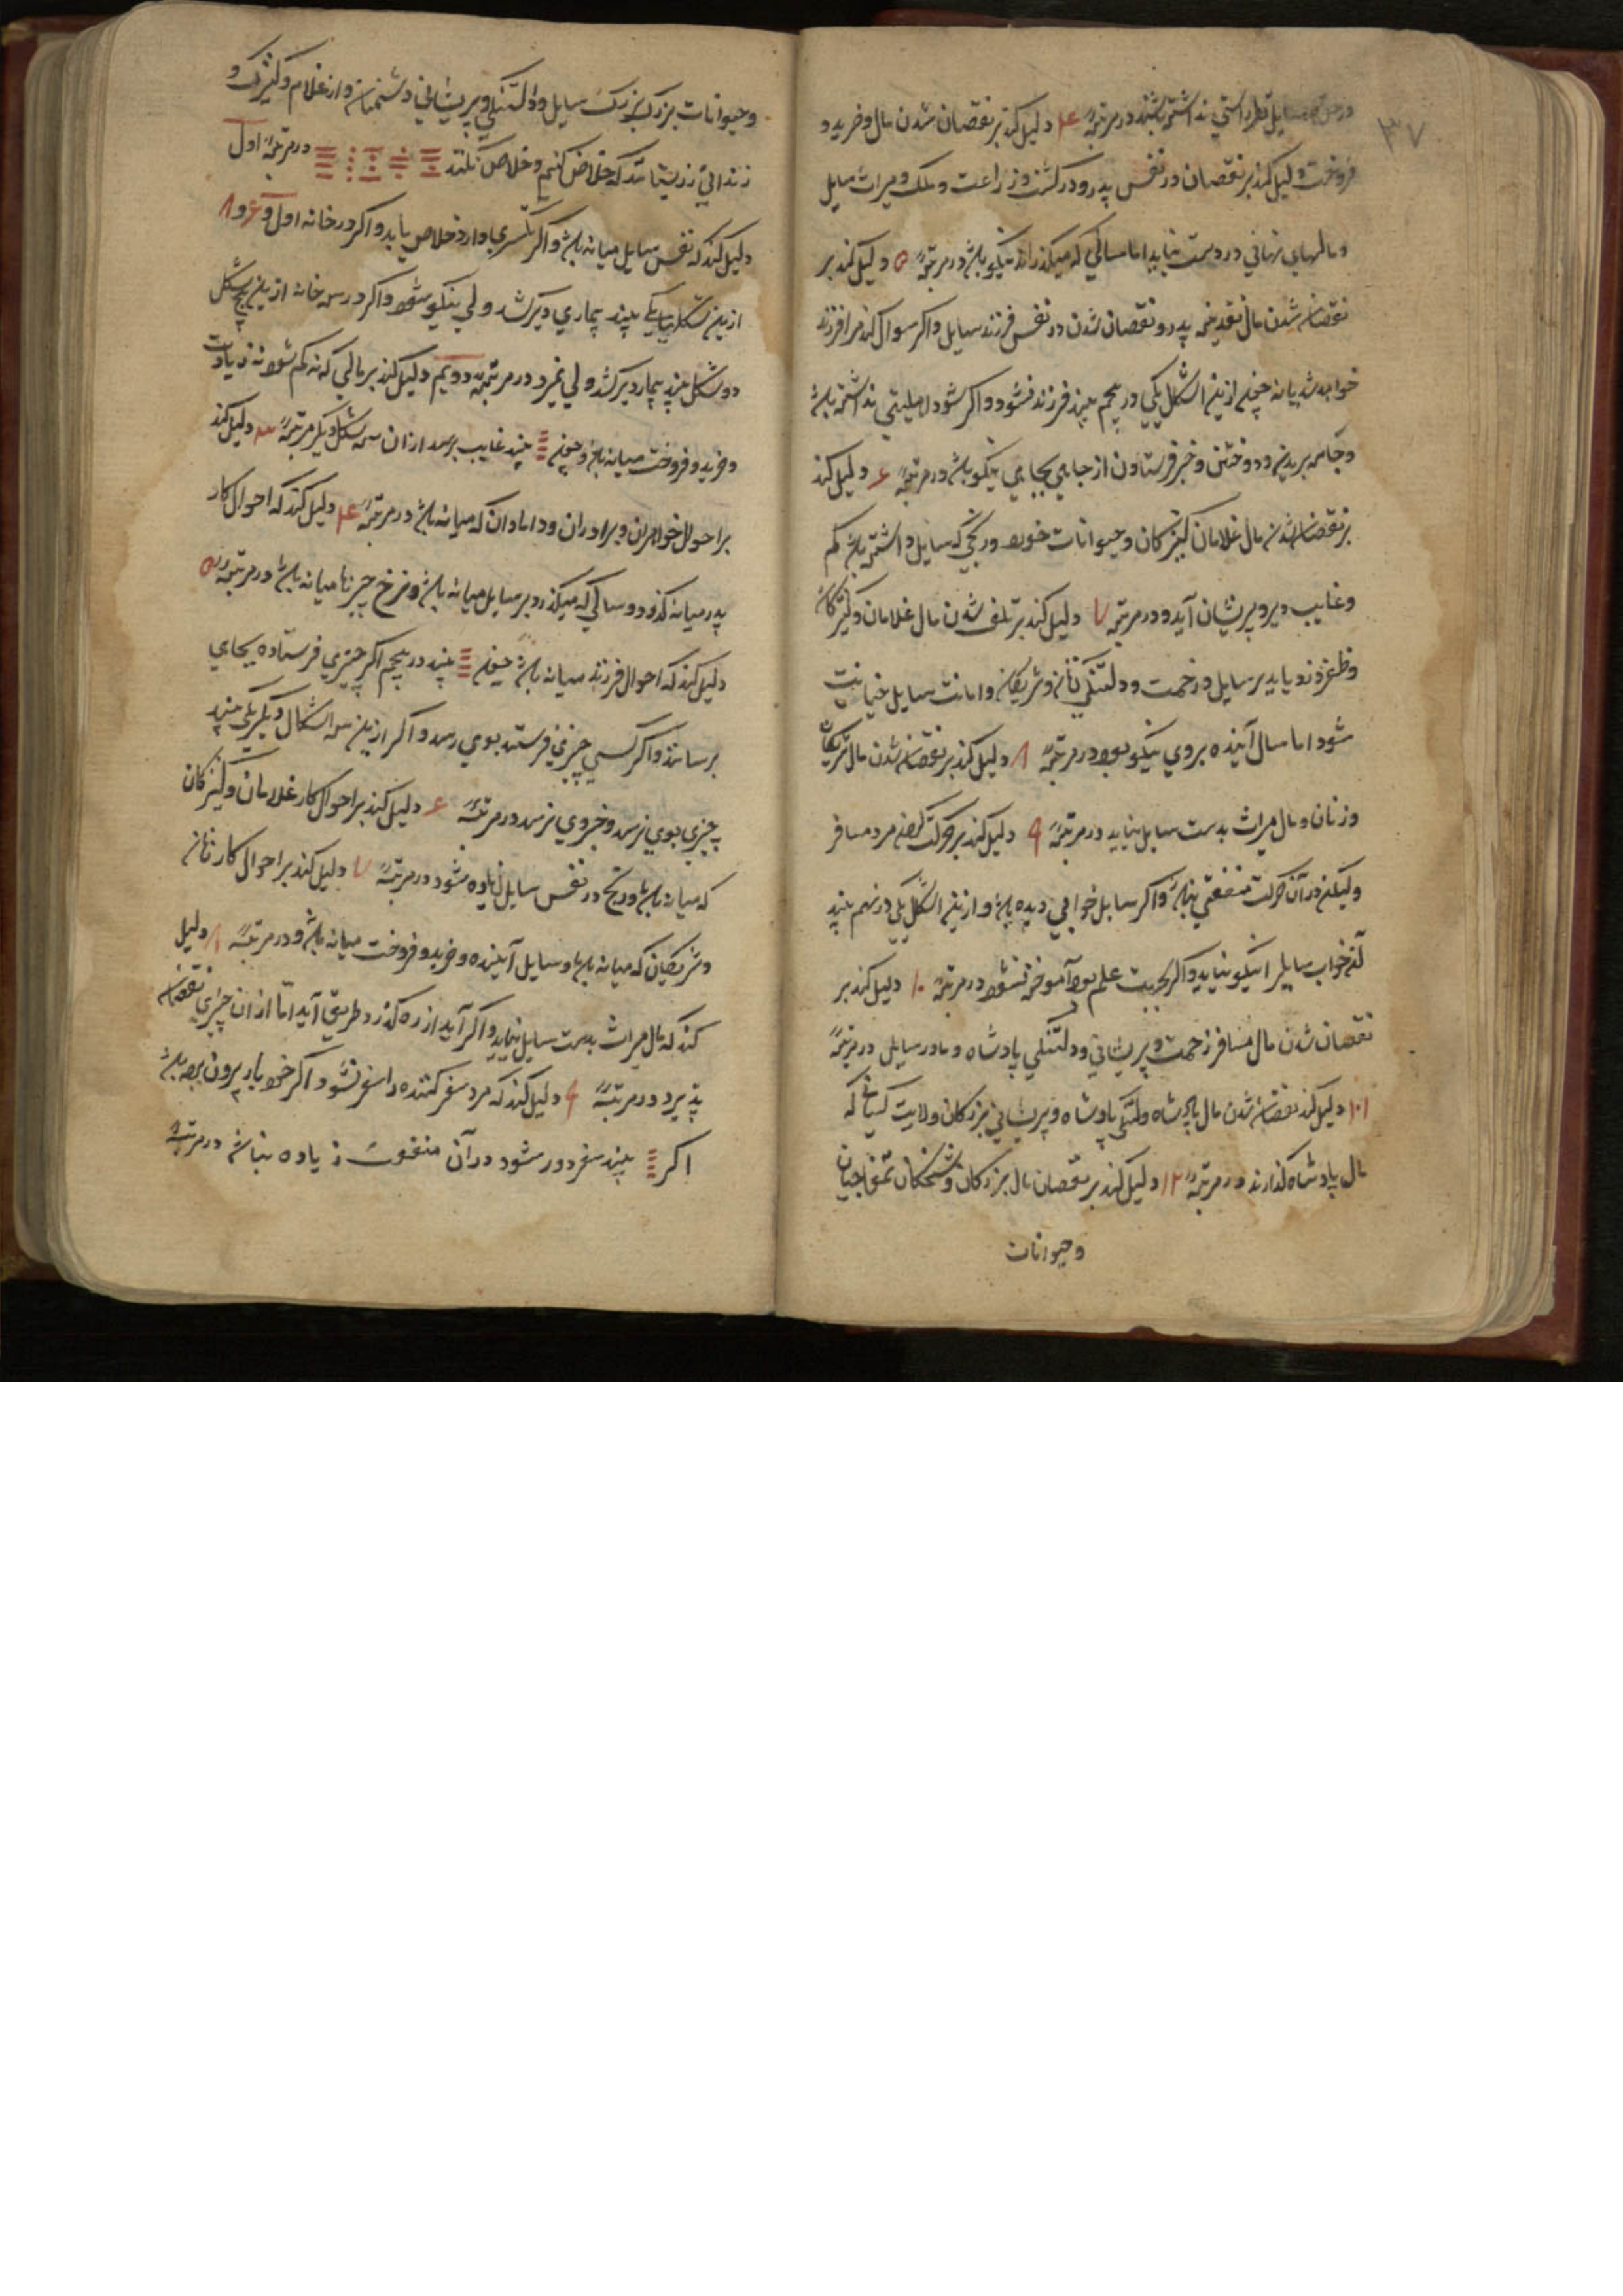 ۳۷
سایل نظر راستی نداشته باشند در مرتبهٔ ۴ دلیل کند بر نقصان شدن مال و خرید و
فروخت و دلیل کند بر نقصان در نفس پدر و در کشت و زراعت و ملک و میراث سایل
و مالهای نهانی در دست نیاید اما سالی که میگذراند نیکو باشد در مرتبهٔ ۵ دلیل کند بر
نقصان شدن مال پدر و نقصان شدن در نفس فرزند سایل و اگر سوال کند مرا فرزند
خواهد شد یا نه چنانچه ازین اشکل یکی در پنجم بیند فرزند نشود و اگر شود اهلیتی نداشته باشد
و جامه بریدن و دوختن و خبر فرستادن از جایی بجایی نیکو باشد در مرتبهٔ ۶ دلیل کند
بر نقصان شدن مال غلامان کنیزکان و حیوانات خورد و رنجی که سایل داشته باشد کم
و غایب دیر و پریشان آید و در مرتبه ۷ دلیل کند بر تلف شدن مال غلامان و کنیزکان
و ظفر دزد یابد بر سایل و زحمت و دلتنگی زنان و شریکان و امانت سایل خیانت
شود اما سال آینده بروی نیکو بود در مرتبهٔ ۸ دلیل کند بر نقصان شدن مال شریکان
و زنان و مال میراث بدست سایل نیاید در مرتبهٔ ۹ دلیل کند بر حرکت کردن مرد مسافر
ولیکن در آن حرکت منفعتی نباشد و اگر سایل خوابی دیده باشد و ازین اشکل یکی در نهم بیند
آن خواب سایل را نیکو نیاید و اگر بجهت علم بود آموخته نشود در مرتبهٔ ۱۰ دلیل کند بر
نقصان شدن مال مسافر زحمت و پریشانی و دلتنگی پادشاه و مادر سایل در مرتبهٔ
۱۱ دلیل کند نقصان شدن مال پادشاه و دلتنگی پادشاه و پریشانی بزرگان ولایت کسانی که
مال پادشاه گذارند در مرتبهٔ ۱۲ دلیل کند بر نقصان مال بزرگان و شحنگان تمغاجیان
و حیوانات
و حیوانات بزرگ بزرگ سایل و دلتنگی و پریشانی دشمنان و از غلام و کنیزک و
زندانی که خلاص کنیم و خلاص نکنند در مرتبهٔ اول
دلیل کند که نفس سایل میانه باشد و اگر خلاص یابد و اگر در خانه اول و ۶ و ۸
ازین شکل یکی بیند بیماری دیر کشد ولی نیکو شود و اگر در سه خانه ازین پنج شکل
دو شکل بیند بیمار دیر کشد ولی نمیرد در مرتبهٔ دویم دلیل کند بر مالی که نه کم شود نه زیادت
و خرید و فروخت میانه باشد و چون بیند غایب برسد از ان سه شکل دیگر مرتبهٔ ۳ دلیل کند
بر احوال خواهران و برادران و دامادان که میانه باشد در مرتبهٔ ۴ دلیل کند که احوال کار
پدر میانه گذرد و سالی که میگذرد بر سایل میانه باشد و نرخ چیزها میانه باشد در مرتبهٔ ۵
دلیل کند که احوال فرزند میانه باشد چون بیند در پنجم اگر چیزی فرستاده بجای
برسانند و اگر کسی چیزی فرستد بوی رسد و اگر ازین سه اشکال دیگر یکی بیند
چیزی بوی نرسد و خبر وی نرسد در مرتبهٔ ۶ دلیل کند بر احوال کار غلامان و کنیزکان
که میانه باشد و رنج در نفس سایل زیاده شود در مرتبهٔ ۷ دلیل کند بر احوال کار زنان
و شریکان که میانه باشد و سایل آینده و خرید و فروخت میانه باشد و در مرتبهٔ ۸ دلیل
کند که مال میراث بدست سایل نیاید و اگر آید از ره گذر و طریق آید اما از ان چیزی نقصان
پذیرد در مرتبهٔ ۹ دلیل کند که مرد سفر کننده را سفر نشود اگر خود بار بیرون برده باشد
اگر بیند سفر دور شود در آن منفعت زیاده نباشد در مرتبهٔ